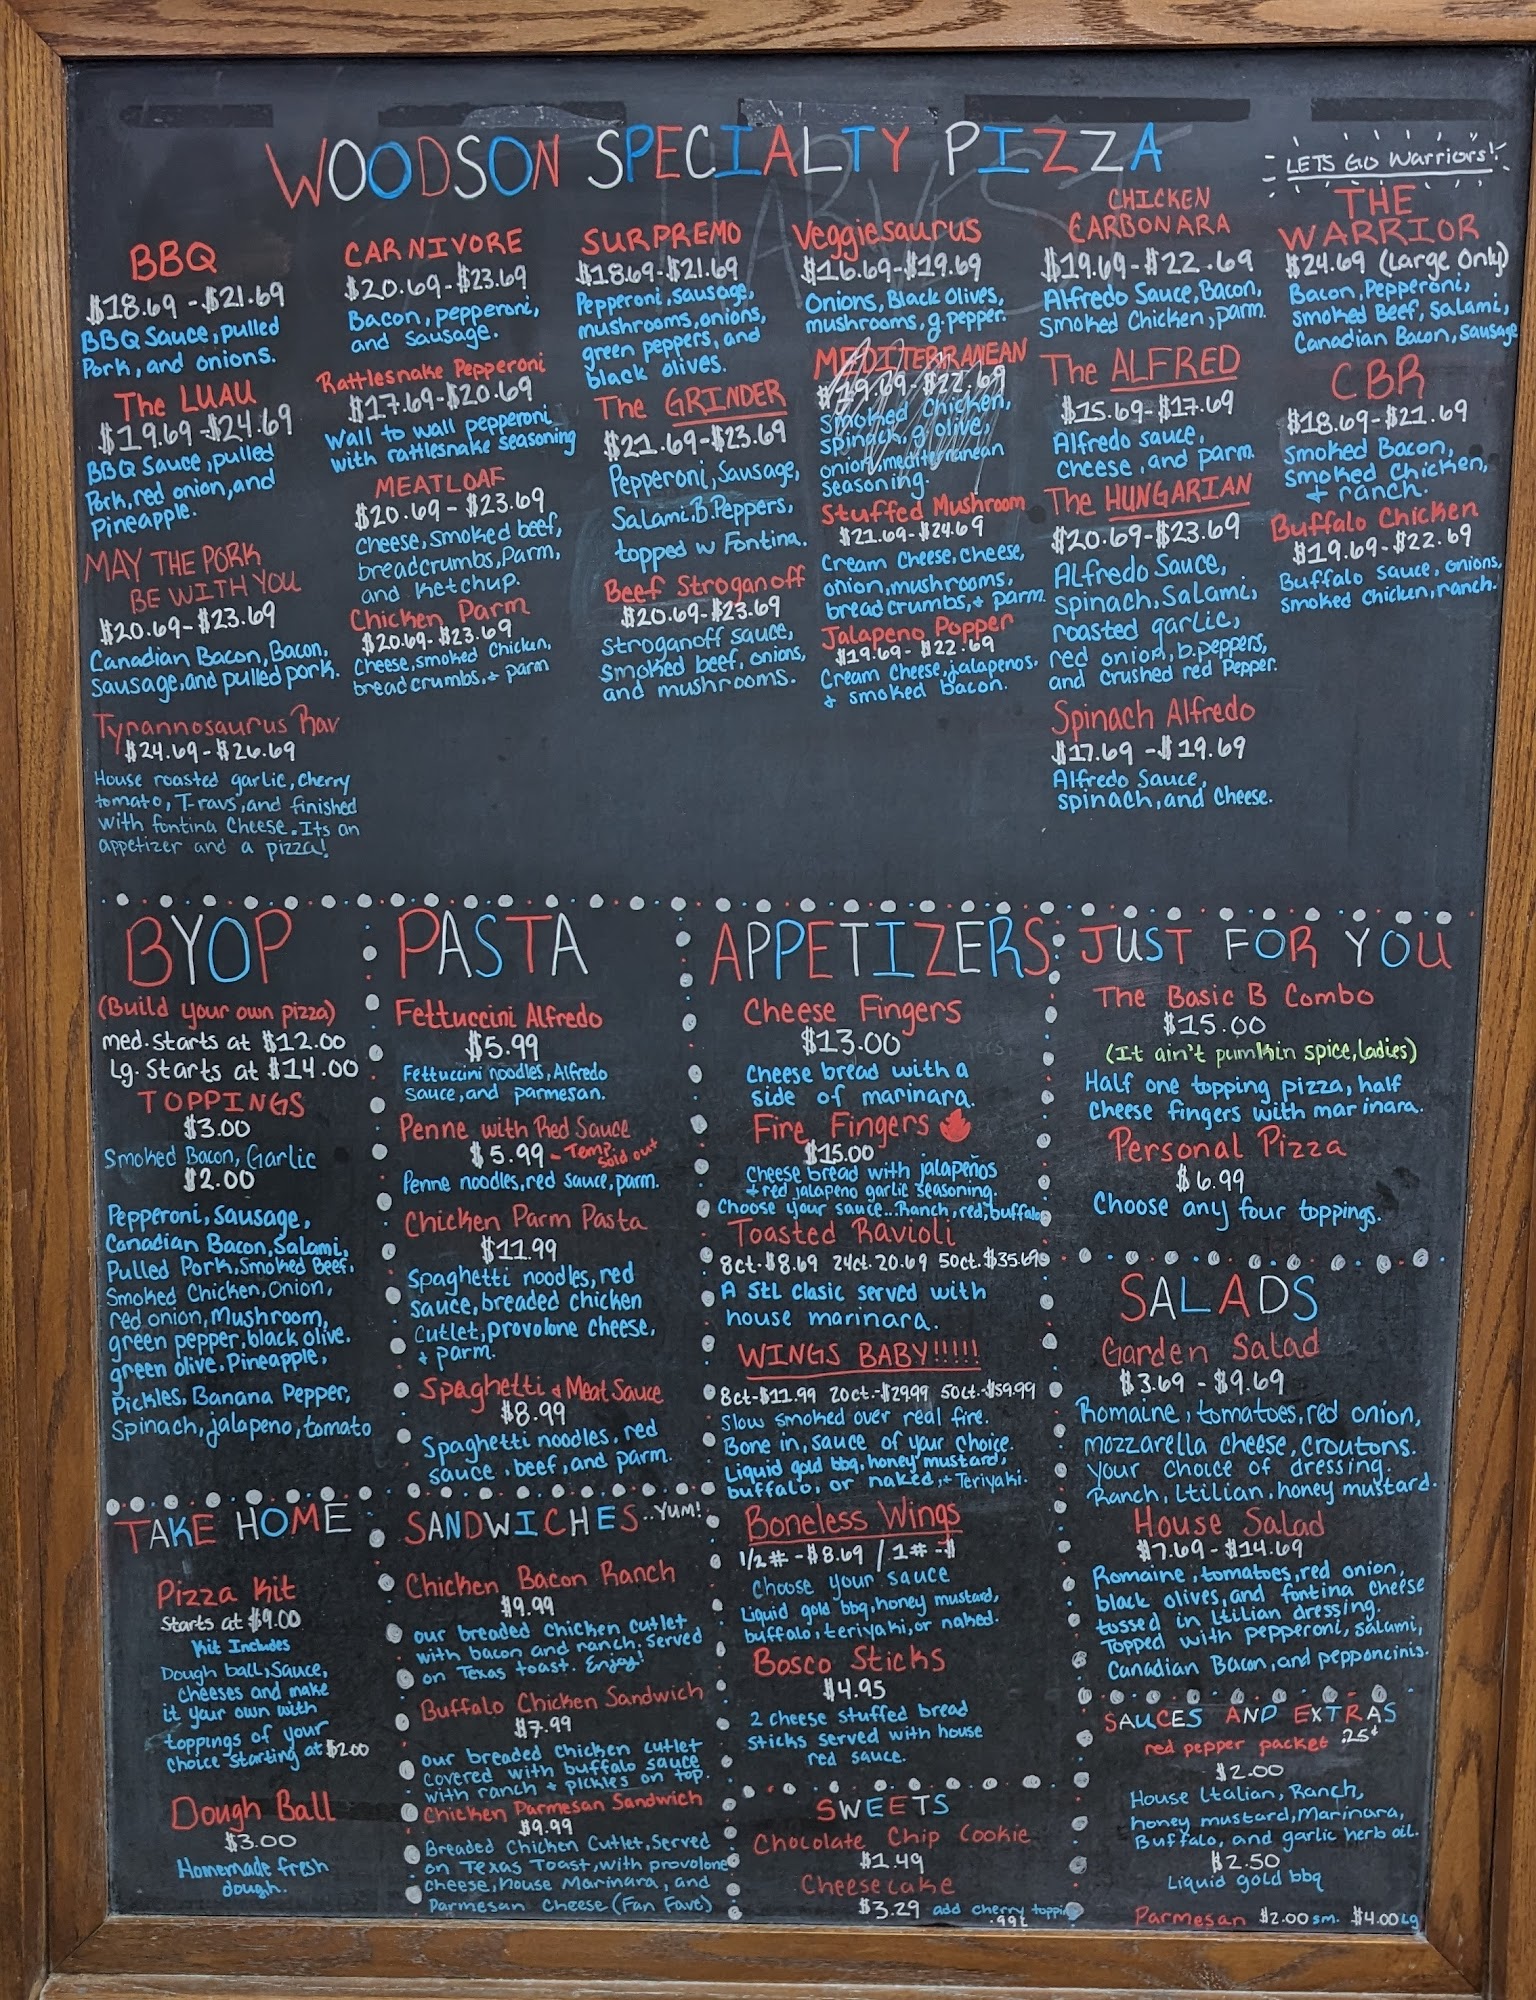 WOODSON SPECIALTY PIZZA
LETS GO Warriors!
BBQ
$18.69 - $21.69
BBQ Sauce, pulled
Pork, and onions.
The LUAU
$19.69 - $24.69
BBQ Sauce, pulled
Pork, red onion, and
Pineapple.
MAY THE PORK
BE WITH YOU
$20.69 - $23.69
Canadian Bacon, Bacon,
Sausage, and pulled pork.
Tyrannosaurus Rav
$24.69 - $26.69
House roasted garlic, cherry
tomato, T-ravs, and finished
with fontina cheese. Its an
appetizer and a pizza!
CARNIVORE
$20.69 - $23.69
Bacon, pepperoni,
and sausage.
Rattlesnake Pepperoni
$17.69 - $20.69
Wall to wall pepperoni
with rattlesnake seasoning
MEATLOAF
$20.69 - $23.69
Cheese, smoked beef,
breadcrumbs, Parm,
and ketchup.
Chicken Parm
$20.69 - $23.69
Cheese, smoked chicken,
breadcrumbs, + parm
SURPREMO
$18.69 - $21.69
Pepperoni, sausage,
mushrooms, onions,
green peppers, and
black olives.
The GRINDER
$21.69 - $23.69
Pepperoni, Sausage,
Salami, B. Peppers,
topped w Fontina.
Beef Stroganoff
$20.69 - $23.69
Stroganoff sauce,
smoked beef, onions,
and mushrooms.
Veggiesaurus
$16.69 - $19.69
Onions, Black Olives,
mushrooms, g. pepper.
MEDITERRANEAN
$19.69 - $22.69
Smoked Chicken,
spinach, g olive,
onion, mediterranean
seasoning.
Stuffed Mushroom
$21.69 - $24.69
Cream Cheese, cheese,
onion, mushrooms,
bread crumbs, + parm
Jalapeno Popper
$19.69 - $22.69
Cream Cheese, jalapenos,
+ smoked bacon.
CHICKEN
CARBONARA
$19.69 - $22.69
Alfredo Sauce, Bacon,
Smoked Chicken, parm.
The ALFRED
$15.69 - $17.69
Alfredo sauce,
cheese, and parm.
The HUNGARIAN
$20.69 - $23.69
ALfredo Sauce,
spinach, Salami,
roasted garlic,
red onion, b. peppers,
and crushed red Pepper.
Spinach Alfredo
$17.69 - $19.69
Alfredo Sauce,
spinach, and cheese.
THE
WARRIOR
$24.69 (Large Only)
Bacon, Pepperoni,
smoked Beef, Salami,
Canadian Bacon, Sausage
CBR
$18.69 - $21.69
Smoked Bacon,
Smoked Chicken,
+ ranch.
Buffalo Chicken
$19.69 - $22.69
Buffalo sauce, onions,
smoked chicken, ranch.
BYOP
(Build your own pizza)
med. Starts at $12.00
Lg. Starts at $14.00
TOPPINGS
$3.00
Smoked Bacon, Garlic
$2.00
Pepperoni, Sausage,
Canadian Bacon, Salami,
Pulled Pork, Smoked Beef,
Smoked Chicken, Onion,
red onion, Mushroom,
green pepper, black olive.
green olive, Pineapple,
Pickles, Banana Pepper,
Spinach, jalapeno, tomato
TAKE HOME
Pizza Kit
Starts at $9.00
Kit Includes
Dough ball, Sauce,
cheeses and make
it your own with
toppings of your
choice starting at $2.00
Dough Ball
$3.00
Homemade fresh
dough.
PASTA
Fettuccini Alfredo
$5.99
Fettuccini noodles, Alfredo
Sauce, and parmesan.
Penne with Red Sauce
$5.99 - Temp. Sold out
Penne noodles, red sauce, parm.
Chicken Parm Pasta
$11.99
Spaghetti noodles, red
sauce, breaded chicken
cutlet, provolone cheese,
+ parm.
Spaghetti & Meat Sauce
$8.99
Spaghetti noodles, red
sauce, beef, and parm.
SANDWICHES..Yum!
Chicken Bacon Ranch
$9.99
our breaded chicken cutlet
with bacon and ranch. Served
on Texas toast. Enjoy!
Buffalo Chicken Sandwich
$7.99
our breaded chicken cutlet
covered with buffalo sauce
with ranch + pickles on top.
Chicken Parmesan Sandwich
$9.99
Breaded Chicken Cutlet, Served
on Texas Toast, with provolone
cheese, house Marinara, and
Parmesan Cheese (Fan Fave)
APPETIZERS
Cheese Fingers
$13.00
Cheese bread with a
side of marinara.
Fire Fingers
$15.00
Cheese bread with jalapeños
+ red jalapeno garlic seasoning.
Choose your sauce... Ranch, red, buffalo
Toasted Ravioli
8ct. $8.69 24ct. 20.69 50ct. $35.69
A StL clasic served with
house marinara.
WINGS BABY!!!!!
8ct-$11.99 20ct.-$29.99 50ct.-$59.99
Slow smoked over real fire.
Bone in, sauce of your choice.
Liquid gold bbq, honey mustard,
buffalo, or naked, + Teriyaki.
Boneless Wings
1/2# - $8.69 / 1# - $
Choose your sauce
Liquid gold bbq, honey mustard,
buffalo, teriyaki, or naked.
Bosco Sticks
$4.95
2 cheese stuffed bread
sticks served with house
red sauce.
SWEETS
Chocolate Chip Cookie
$1.49
Cheesecake
$3.29 add cherry topping
.99¢
JUST FOR YOU
The Basic B Combo
$15.00
(It ain't pumkin spice, ladies)
Half one topping pizza, half
cheese fingers with marinara.
Personal Pizza
$6.99
Choose any four toppings.
SALADS
Garden Salad
$3.69 - $9.69
Romaine, tomatoes, red onion,
mozzarella cheese, croutons.
Your choice of dressing.
Ranch, Itilian, honey mustard.
House Salad
$7.69 - $14.69
Romaine, tomatoes, red onion,
black olives, and fontina cheese
tossed in Itilian dressing.
Topped with pepperoni, salami,
Canadian Bacon, and pepponcinis.
SAUCES AND EXTRAS
red pepper packet .25¢
$2.00
House Italian, Ranch,
honey mustard, Marinara,
Buffalo, and garlic herb oil.
$2.50
Liquid gold bbq
Parmesan $2.00 sm. $4.00 Lg